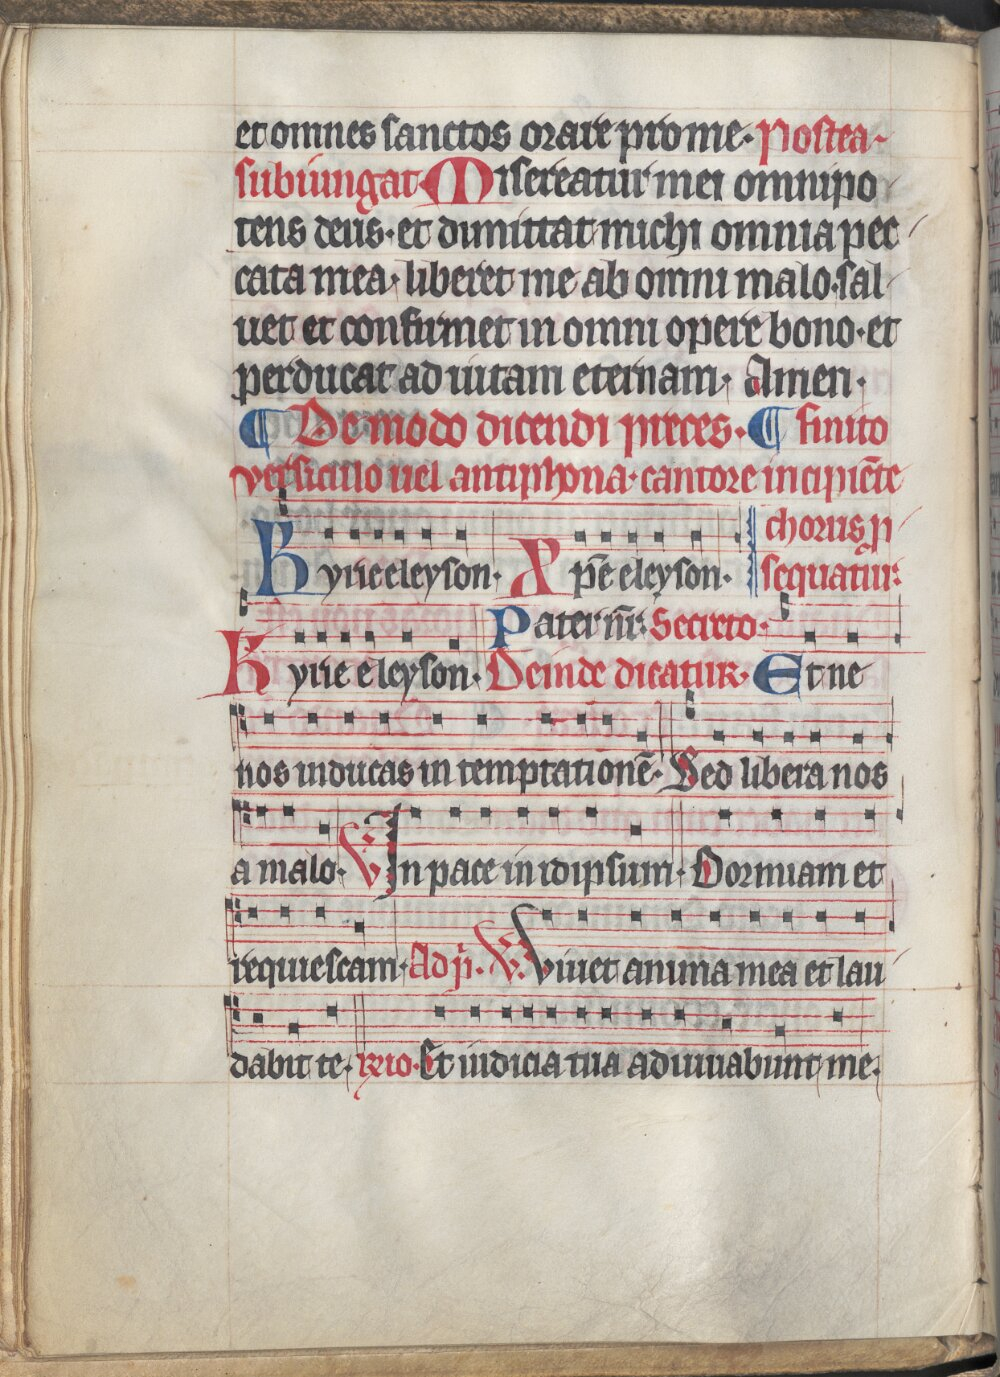 et omnes sanctos orare pro me. Postea
subiungat. Misereatur mei omnipo
tens deus. et dimittat michi omnia pec
cata mea. liberet me ab omni malo. sal
uet et confirmet in omni opere bono. et
perducat ad uitam eternam. Amen.
¶ De modo dicendi preces. ¶ finito
versiculo uel antiphona. cantore incipiēte
chorus p
Kyrie eleyson. Xpē eleyson. sequatur.
Pater nr̄. Secreto.
Kyrie eleyson. Deinde dicatur. Et ne
nos inducas in temptationē. Sed libera nos
a malo. V. In pace in idipsum. Dormiam et
requiescam. Ad p̄. V. Viuet anima mea et lau
dabit te. Rio. Et iudicia tua adiuuabunt me.